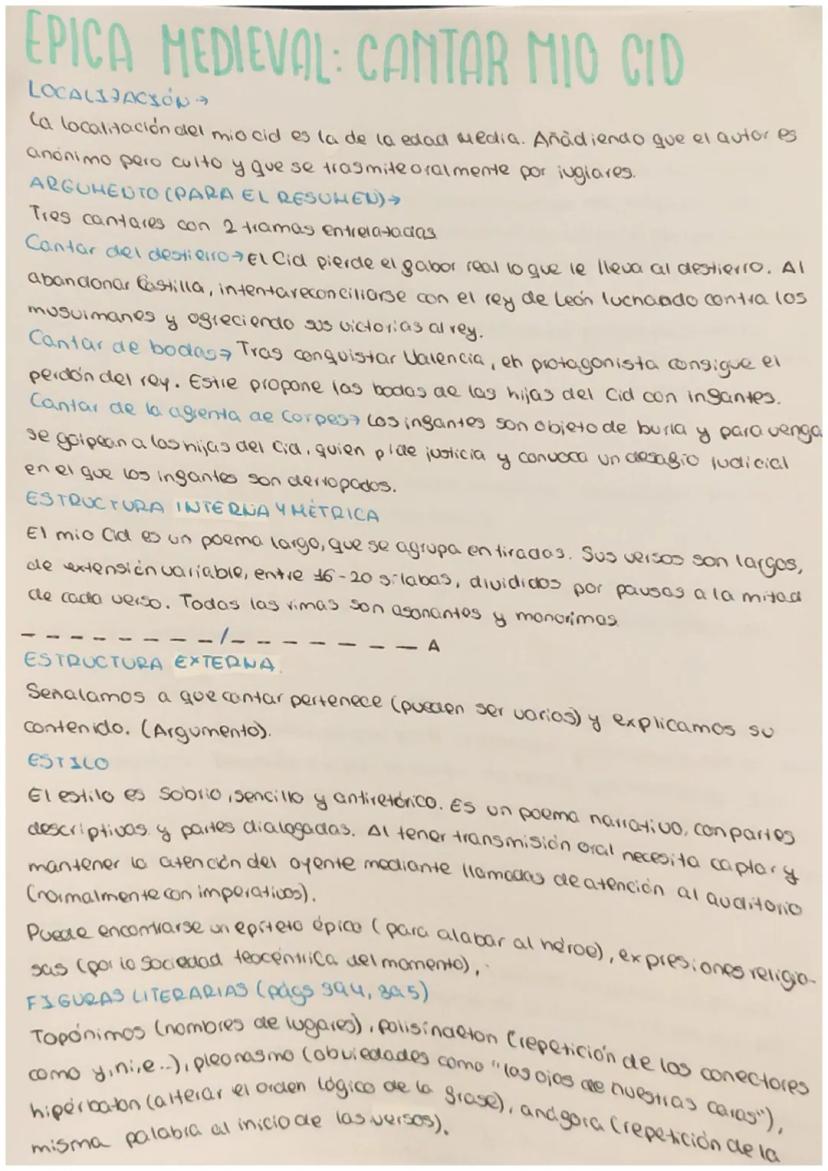 EPICA MEDIEVAL: CANTAR MIO CID
LOCALIZACIÓN →
La localitación del mio cid es la de la edad Media. Añadiendo que el autor es
anónimo pero culto y que se trasmite oralmente por juglares.
ARGUMENTO (PARA EL RESUMEN) →
Tres cantares con 2 tramas entrelazadas
Cantar del destierro → El Cid pierde el gabor real lo que le lleva al destierro. Al
abandonar Castilla, intenta reconciliarse con el rey de León luchando contra los
musulmanes y ogreciendo sus victorias al rey.
Cantar de bodas → Tras conquistar Valencia, eh protagonista consigue el
perdón del rey. Estre propone las bodas de las hijas del Cid con ingantes.
Cantar de la agrenta de Corpes → Los ingantes son objeto de burla y para venga
se golpean a las hijas del Cid, quien pide justicia y convoca un desagio judicial
en el que los ingantes son derropados.
ESTRUCTURA INTERNA Y MÉTRICA
El mio Cid es un poema largo, que se agrupa en tiradas. Sus versos son largos,
de extensión variable, entre 16-20 sílabas, divididos por pausas a la mitad
de cada verso. Todas las rimas son asonantes y monorimas
- - - - - - - - / - - - - - - - - A
ESTRUCTURA EXTERNA.
Señalamos a que cantar pertenece (pueden ser varios) y explicamos su
contenido. (Argumento).
ESTILO
El estilo es sobrio, sencillo y antiretórico. Es un poema narrativo, con partes
descriptivas y partes dialogadas. Al tener transmisión oral necesita captar y
mantener la atención del oyente mediante llamadas de atención al auditorio
(normalmente con imperativos).
Puede encontrarse un epíteto épico (para alabar al héroe), expresiones religio-
sas (por la sociedad teocéntrica del momento),
FIGURAS LITERARIAS (págs 394, 395)
Topónimos (nombres de lugares), polisíndeton (repetición de los conectores
como y, ni, e...), pleonasmo (obviedades como "los ojos de nuestras caras"),
hipérbaton (alterar el orden lógico de la grase), anágora (repetición de la
misma palabra al inicio de los versos).